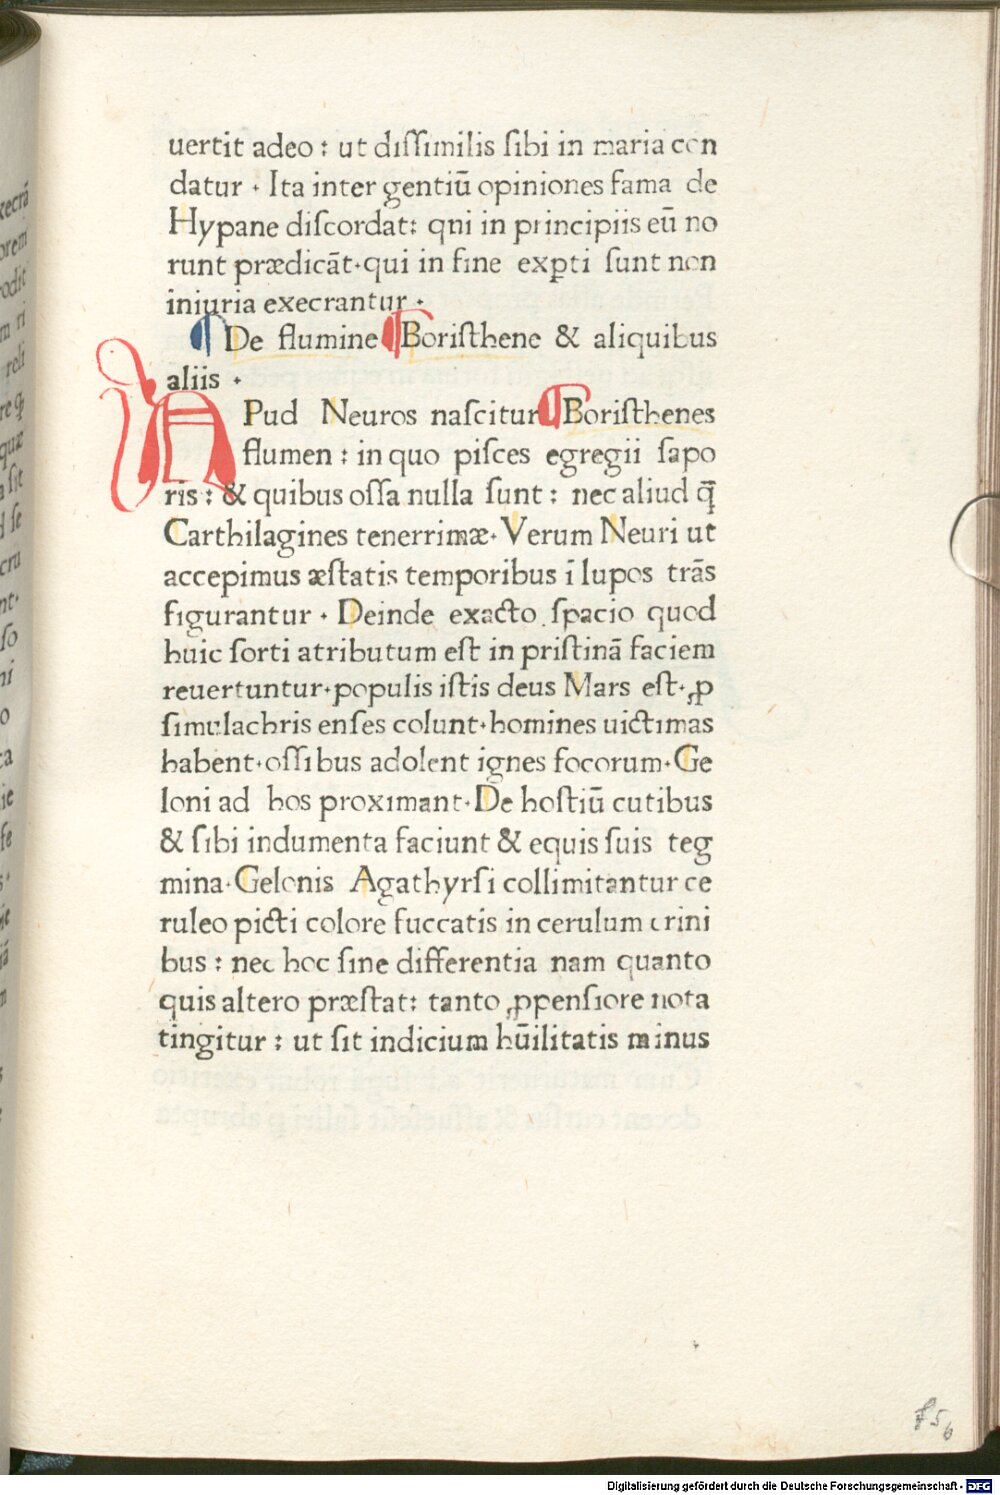 uertit adeo : ut diſſimilis ſibi in maria con
datur · Ita inter gentiū opiniones fama de
Hypane diſcordat: qni in principiis eū no
runt prædicāt·qui in fine exꝑti ſunt non
iniuria execrantur ·
¶ De flumine ¶ Boriſthene & aliquibus
aliis ·
APud Neuros naſcitur ¶ Boriſthenes
flumen : in quo piſces egregii ſapo
ris : & quibus oſſa nulla ſunt : nec aliud q̄
Carthilagines tenerrimæ· Verum Neuri ut
accepimus æſtatis temporibus ī lupos trāſ
figurantur · Deinde exacto ſpacio quod
huic ſorti atributum eſt in priſtinā faciem
reuertuntur·populis iſtis deus Mars eſt·ꝓ
ſimulachris enſes colunt·homines uictimas
habent·oſſibus adolent ignes focorum·Ge
loni ad hos proximant·De hoſtiū cutibus
& ſibi indumenta faciunt & equis ſuis teg
mina·Gelonis Agathyrſi collimitantur ce
ruleo picti colore fuccatis in cerulum crini
bus : nec hoc ſine differentia nam quanto
quis altero præſtat: tanto ꝓpenſiore nota
tingitur : ut ſit indicium hūilitatis minus
Digitalisierung gefördert durch die Deutsche Forschungsgemeinschaft - DFG